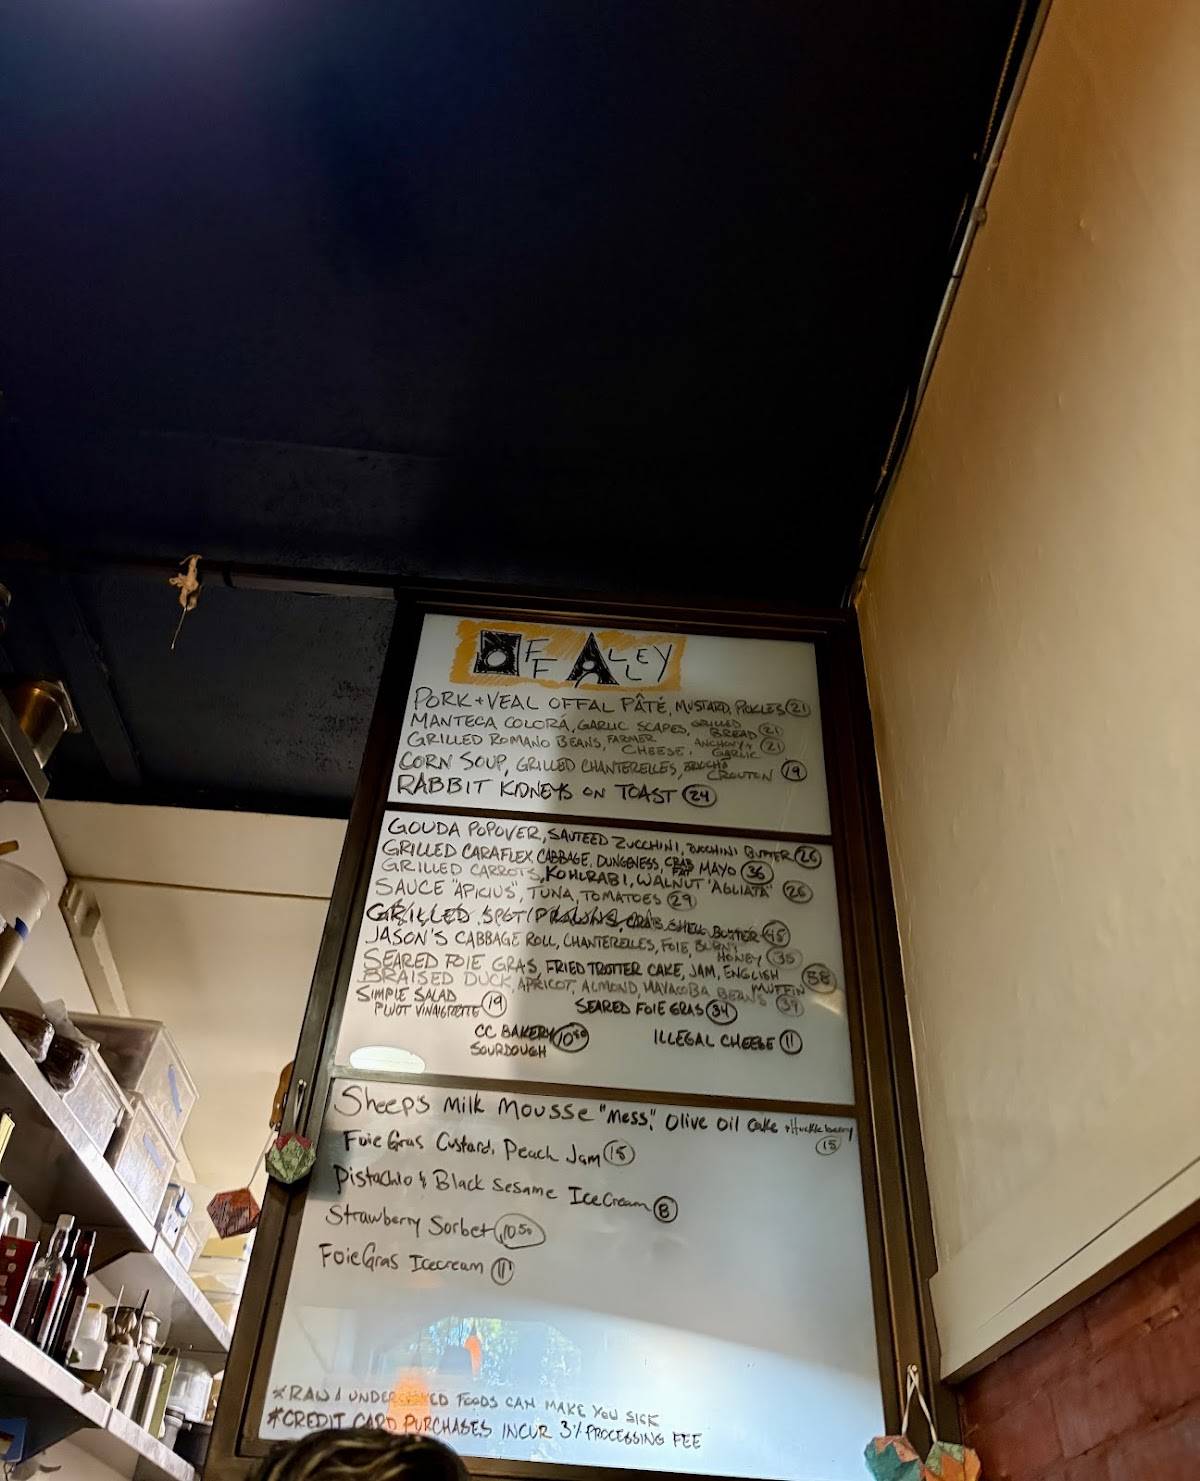 OFF ALLEY
PORK + VEAL OFFAL PÂTÉ, MUSTARD, PICKLES 21
MANTECA COLORÁ, GARLIC SCAPES, GRILLED BREAD 21
GRILLED ROMANO BEANS, FARMER CHEESE, ANCHOVY + GARLIC 21
CORN SOUP, GRILLED CHANTERELLES, BRIOCHE CROUTON 19
RABBIT KIDNEYS ON TOAST 24
GOUDA POPOVER, SAUTEED ZUCCHINI, ZUCCHINI BUTTER 26
GRILLED CARAFLEX CABBAGE, DUNGENESS, CRAB FAT MAYO 36
GRILLED CARROTS, KOHLRABI, WALNUT "AGLIATA" 26
SAUCE "APICIUS", TUNA, TOMATOES 29
GRILLED SPOT PRAWNS, CRAB SHELL BUTTER 45
JASON'S CABBAGE ROLL, CHANTERELLES, FOIE, BURNT HONEY 35
SEARED FOIE GRAS, FRIED TROTTER CAKE, JAM, ENGLISH MUFFIN 38
BRAISED DUCK, APRICOT, ALMOND, MAYACOBA BEANS 39
SIMPLE SALAD PLUOT VINAIGRETTE 19
SEARED FOIE GRAS 34
CC BAKERY SOURDOUGH 10 50
ILLEGAL CHEESE 11
Sheep's Milk Mousse "Mess", Olive Oil Cake + Huckleberry 15
Foie Gras Custard, Peach Jam 15
Pistachio & Black Sesame Ice Cream 8
Strawberry Sorbet 10 50
Foie Gras Icecream 11
*RAW & UNDERCOOKED FOODS CAN MAKE YOU SICK
*CREDIT CARD PURCHASES INCUR 3% PROCESSING FEE